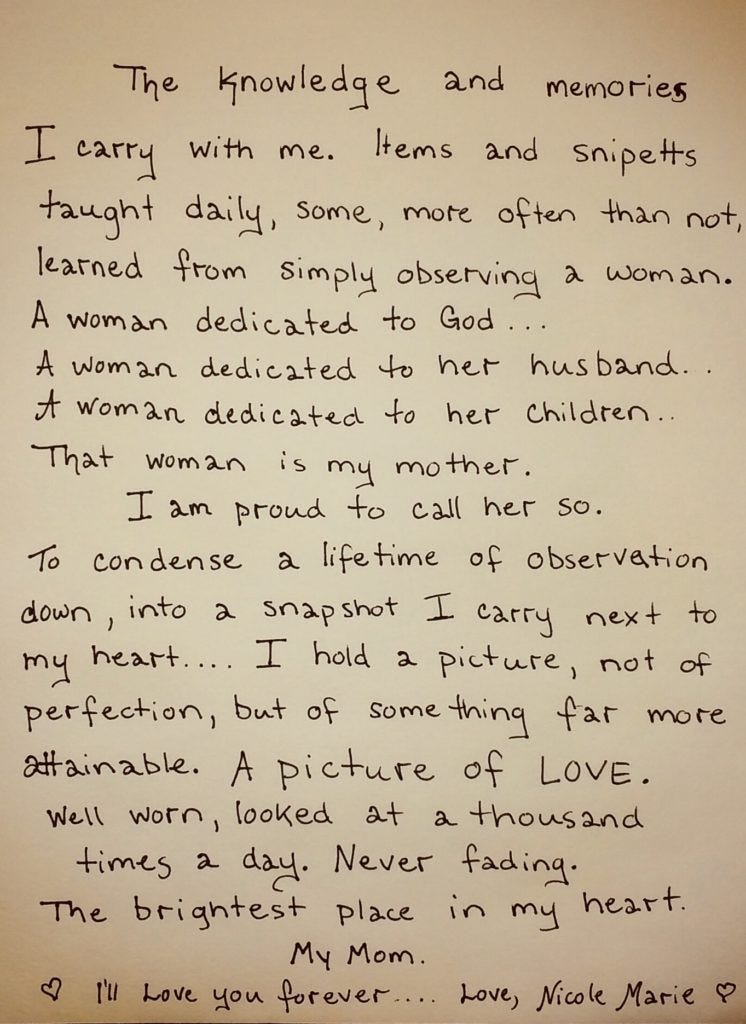 The knowledge and memories
I carry with me. Items and snipetts
taught daily, some, more often than not,
learned from simply observing a woman.
A woman dedicated to God...
A woman dedicated to her husband..
A woman dedicated to her children..
That woman is my mother.
I am proud to call her so.
To condense a lifetime of observation
down, into a snapshot I carry next to
my heart.... I hold a picture, not of
perfection, but of something far more
attainable. A picture of LOVE.
Well worn, looked at a thousand
times a day. Never fading.
The brightest place in my heart.
My Mom.
♡ I'll Love you forever.... Love, Nicole Marie ♡